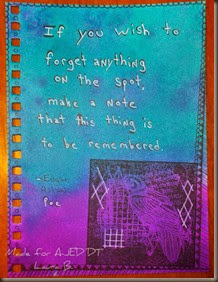 If you wish to
forget anything
on the spot,
make a note
that this thing is
to be remembered.
- Edgar
Allan
Poe
Made for AJEDDT